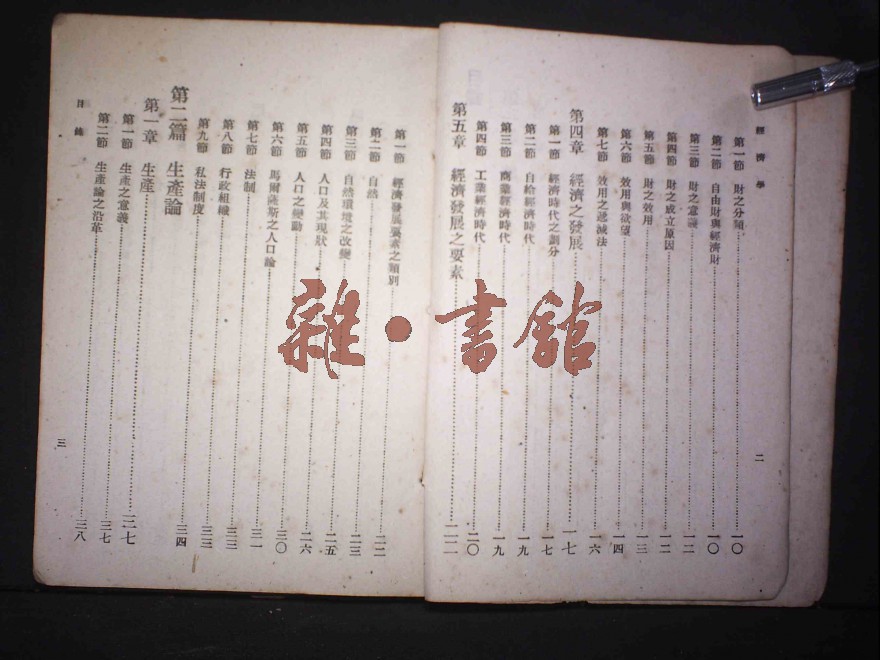 經濟學
第一節 財之分類 一〇
第二節 自由財與經濟財 一〇
第三節 財之意義 一二
第四節 財之成立原因 一二
第五節 財之效用 一三
第六節 效用與慾望 一四
第七節 效用之遞減法 一六
第四章 經濟之發展 一七
第一節 經濟時代之劃分 一七
第二節 自給經濟時代 一九
第三節 商業經濟時代 一九
第四節 工業經濟時代 二〇
第五章 經濟發展之要素
二
第一節 經濟發展要素之類別 二二
第二節 自然 二三
第三節 自然環境之改變 二五
第四節 人口及其現狀 二六
第五節 人口之變動 三〇
第六節 馬爾薩斯之人口論 三一
第七節 法制 三三
第八節 行政組織 三三
第九節 私法制度 三四
第二篇 生產論
第一章 生產 三七
第一節 生產之意義 三七
第二節 生產論之沿革 三八
目錄
三
雜·書館